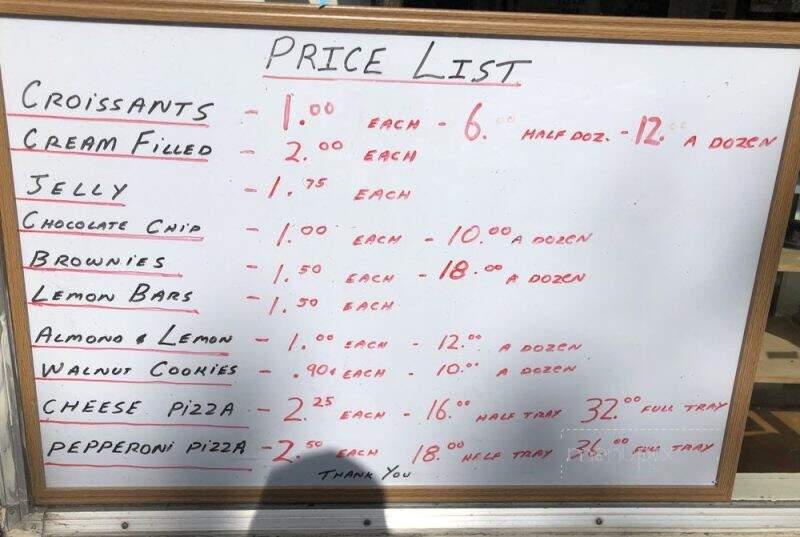 PRICE LIST
CROISSANTS - 1.00 EACH - 6.00 HALF DOZ. - 12.00 A DOZEN
CREAM FILLED - 2.00 EACH
JELLY - 1.75 EACH
CHOCOLATE CHIP - 1.00 EACH - 10.00 A DOZEN
BROWNIES - 1.50 EACH - 18.00 A DOZEN
LEMON BARS - 1.50 EACH
ALMOND & LEMON - 1.00 EACH - 12.00 A DOZEN
WALNUT COOKIES - .90¢ EACH - 10.00 A DOZEN
CHEESE PIZZA - 2.25 EACH - 16.00 HALF TRAY 32.00 FULL TRAY
PEPPERONI PIZZA - 2.50 EACH 18.00 HALF TRAY 36.00 FULL TRAY
THANK YOU